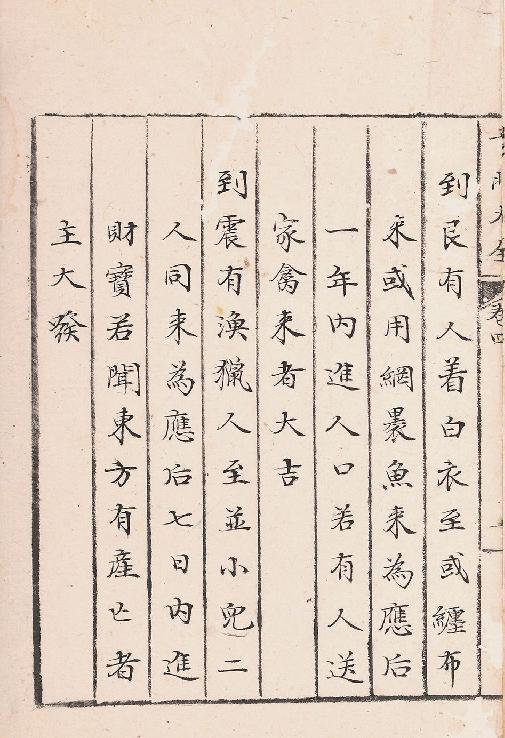 卷四
到艮有人着白衣至或纏布
来或用網褁魚来為應后
一年内進人口若有人送
家禽来者大吉
到震有渙猟人至並小児二
人同来為應后七日内進
財寳若聞東方有産亡者
主大發